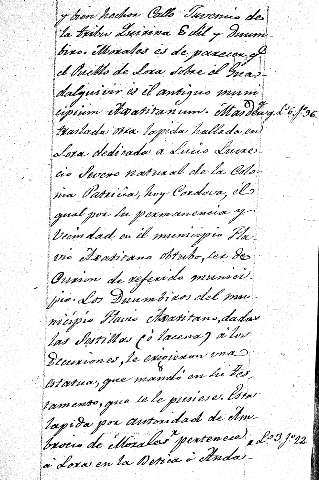 y bien hechor Cello Tuvencio de
la tribu Quirina Edil y Duum-
biro. Morales es de parecer, q.
el Pueblo de Lora sobre el Gua-
dalquivir es el antiguo muni-
cipium Axatitanum. Mas L. 6, f. 96
traslada otra lapida hallada en
Lora dedicada a Lucio Lucre-
cio Severo natural de la Colo-
nia Patricia, hoy Cordova, el
qual por su permanencia y
Vecindad en el municipio Fla-
vio Axatitano obtubo, ser de
Curion de referido munici-
pio. Los Duumbiros del mu-
nicipio Flavio Axatitano, dadas
las Sestillas (ò lacena) à los
Decuriones, le erigieron una
estatua, que mandó en su tes-
tamento, que se le pusiese. Esta
lapida por autoridad de Am-
brocio de Morales pertenece L. 9, f. 22
à Lora en la Betica ò Anda-